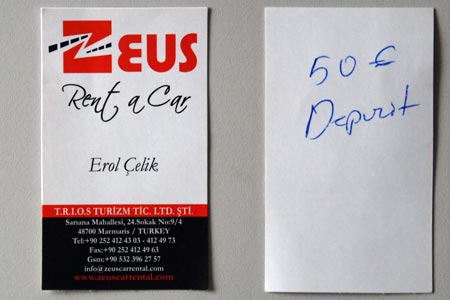 ZEUS
Rent a Car
Erol Çelik
T.R.I.O.S TURİZM TİC. LTD. ŞTİ.
Sarıana Mahallesi, 24.Sokak No:9/4
48700 Marmaris / TURKEY
Tel:+90 252 412 43 03 - 412 49 73
Fax:+90 252 412 49 63
Gsm:+90 532 396 27 57
info@zeuscarrental.com
www.zeuscarrental.com
50 €
Deposit